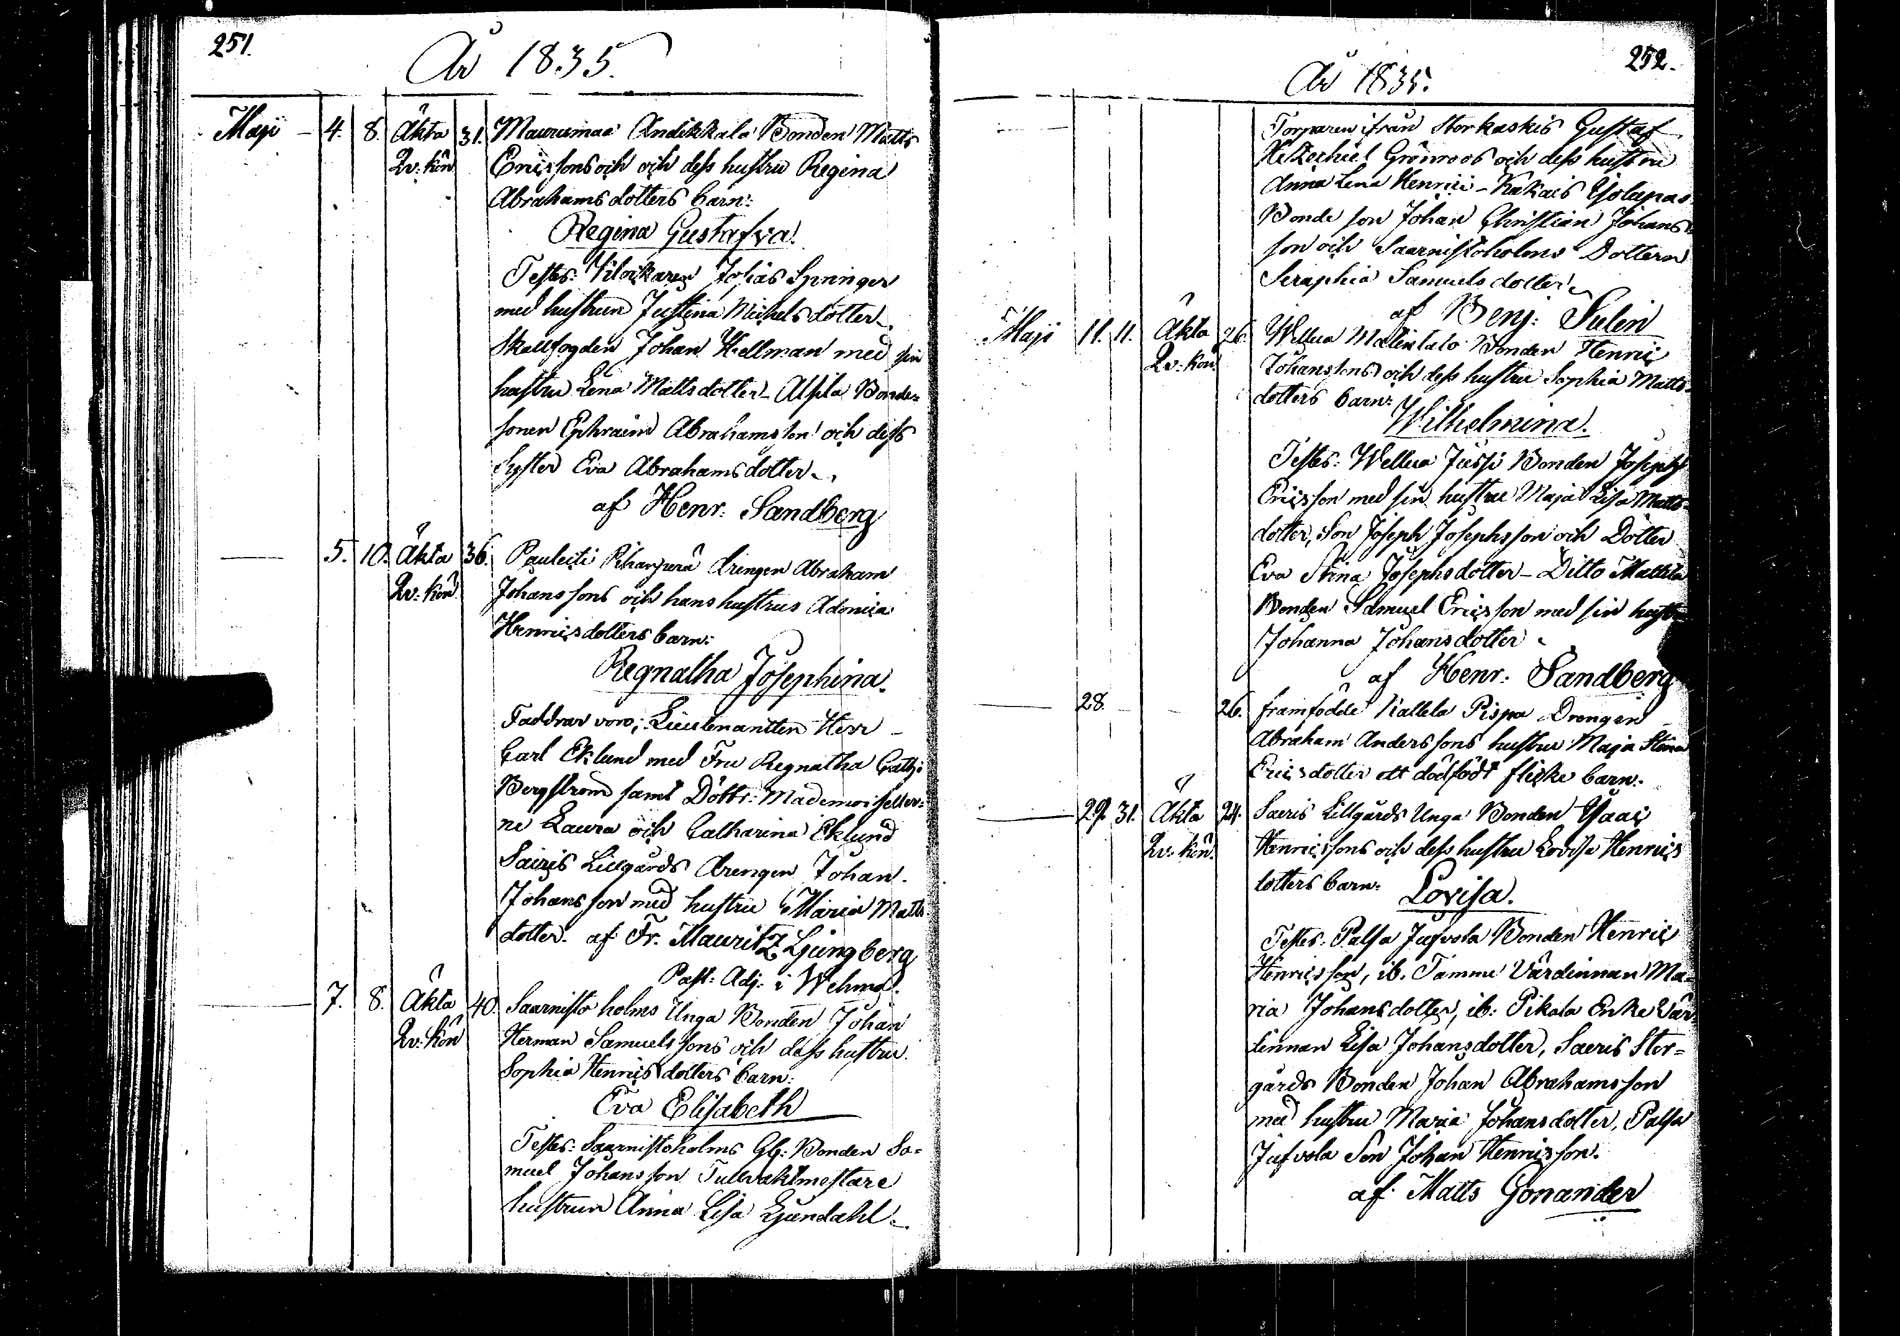 251.
År 1835.
Maji 4. 8. Äkta 31. Maurumaa Andikkala Bonden Matts
Qv: kön Ericssons och och dess hustru Regina
Abrahamsdotters barn:
Regina Gustafva.
Testes: Klockaren Johas Springer
med hustrun Justina Michelsdotter
Skallfogden Johan Hellman med sin
hustru Lena Mattsdotter - Alsila Bonde-
sonen Ephraim Abrahamsson och dess
Syster Eva Abrahamsdotter.
af Henr: Sandberg
5. 10. Äkta 36. Pauleiti Riharperä drengen Abraham
Qv: kön Johanssons och hans hustrus Adonica
Henricsdotters barn:
Regnatha Josephina.
Faddrar voro: Lieutenantten Herr
Carl Eklund med Fru Regnatha Cath:
Bergström samt Döttr: Mademoiseller-
ne Laura och Catharina Eklund
Sairis Lillgårds drengen Johan
Johansson med hustru Maria Matts
dotter. af Fr. Mauritz Ljungberg
Past: Adj: i Wehmo.
7. 8. Äkta 40. Saarnisto holms Unga Bonden Johan
Qv: kön Herman Samuelssons och dess hustru
Sophia Henricsdotters barn:
Eva Elisabeth
Testes: Saarnistoholms Gl: Bonden Sa-
muel Johansson Tullvaktmestare
hustrun Anna Lisa Ljundahl
252.
År 1835.
Torparen ifrån Storkaskis Gustaf
Hezechiel Grönroos och dess hustru
Anna Lena Henrici - Kakais Ylolapas
Bonde son Johan Christian Johans-
son och Saarnistoholms Dottern
Seraphia Samuelsdotter
af Benj: Sulin
Maji 11. 11. Äkta 26. Wellua Malintalo Bonden Henric
Qv: kön Johanssons och dess hustru Sophia Matts-
dotters barn:
Wilhelmina.
Testes: Wellua Jussi Bonden Joseph
Ericsson med sin hustru Maja Lisa Matts-
dotter, Son Joseph Josephsson och Dotter
Eva Stina Josephsdotter - Ditto Mattila
Bonden Samuel Ericsson med sin hustr
Johanna Johansdotter
af Henr: Sandberg
28. 26. framfödde Kallela Pispa Drengen
Abraham Anderssons hustru Maja Stina
Ericsdotter ett dödfödt flicke barn.
29. 31. Äkta 24. Saeris Lillgårds Unga Bonden Ysaac
Qv: kön Henricssons och dess hustru Lovisa Henrics
dotters barn:
Lovisa.
Testes: Palsa Jufvola Bonden Henric
Henricsson, ib. Tammi Värdinnan Ma-
ria Johansdotter, ib: Pikala Enke Vär-
dinnan Lisa Johansdotter, Saeris Stor-
gårds Bonden Johan Abrahamsson
med hustru Maria Johansdotter, Palsa
Jufvola Son Johan Henricsson.
af Matts Gonander